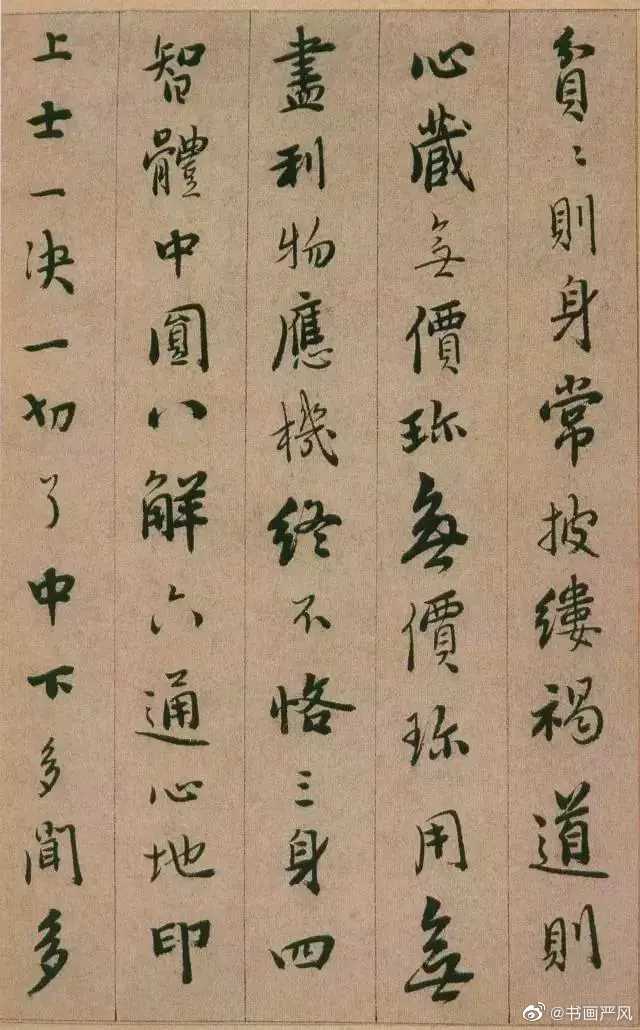 貧〻則身常披縷褐道則
心蔵無價珎無價珎用無
盡利物應機終不恪三身四
智體中圓八解六通心地印
上士一决一切了中下多聞多
@书画严风